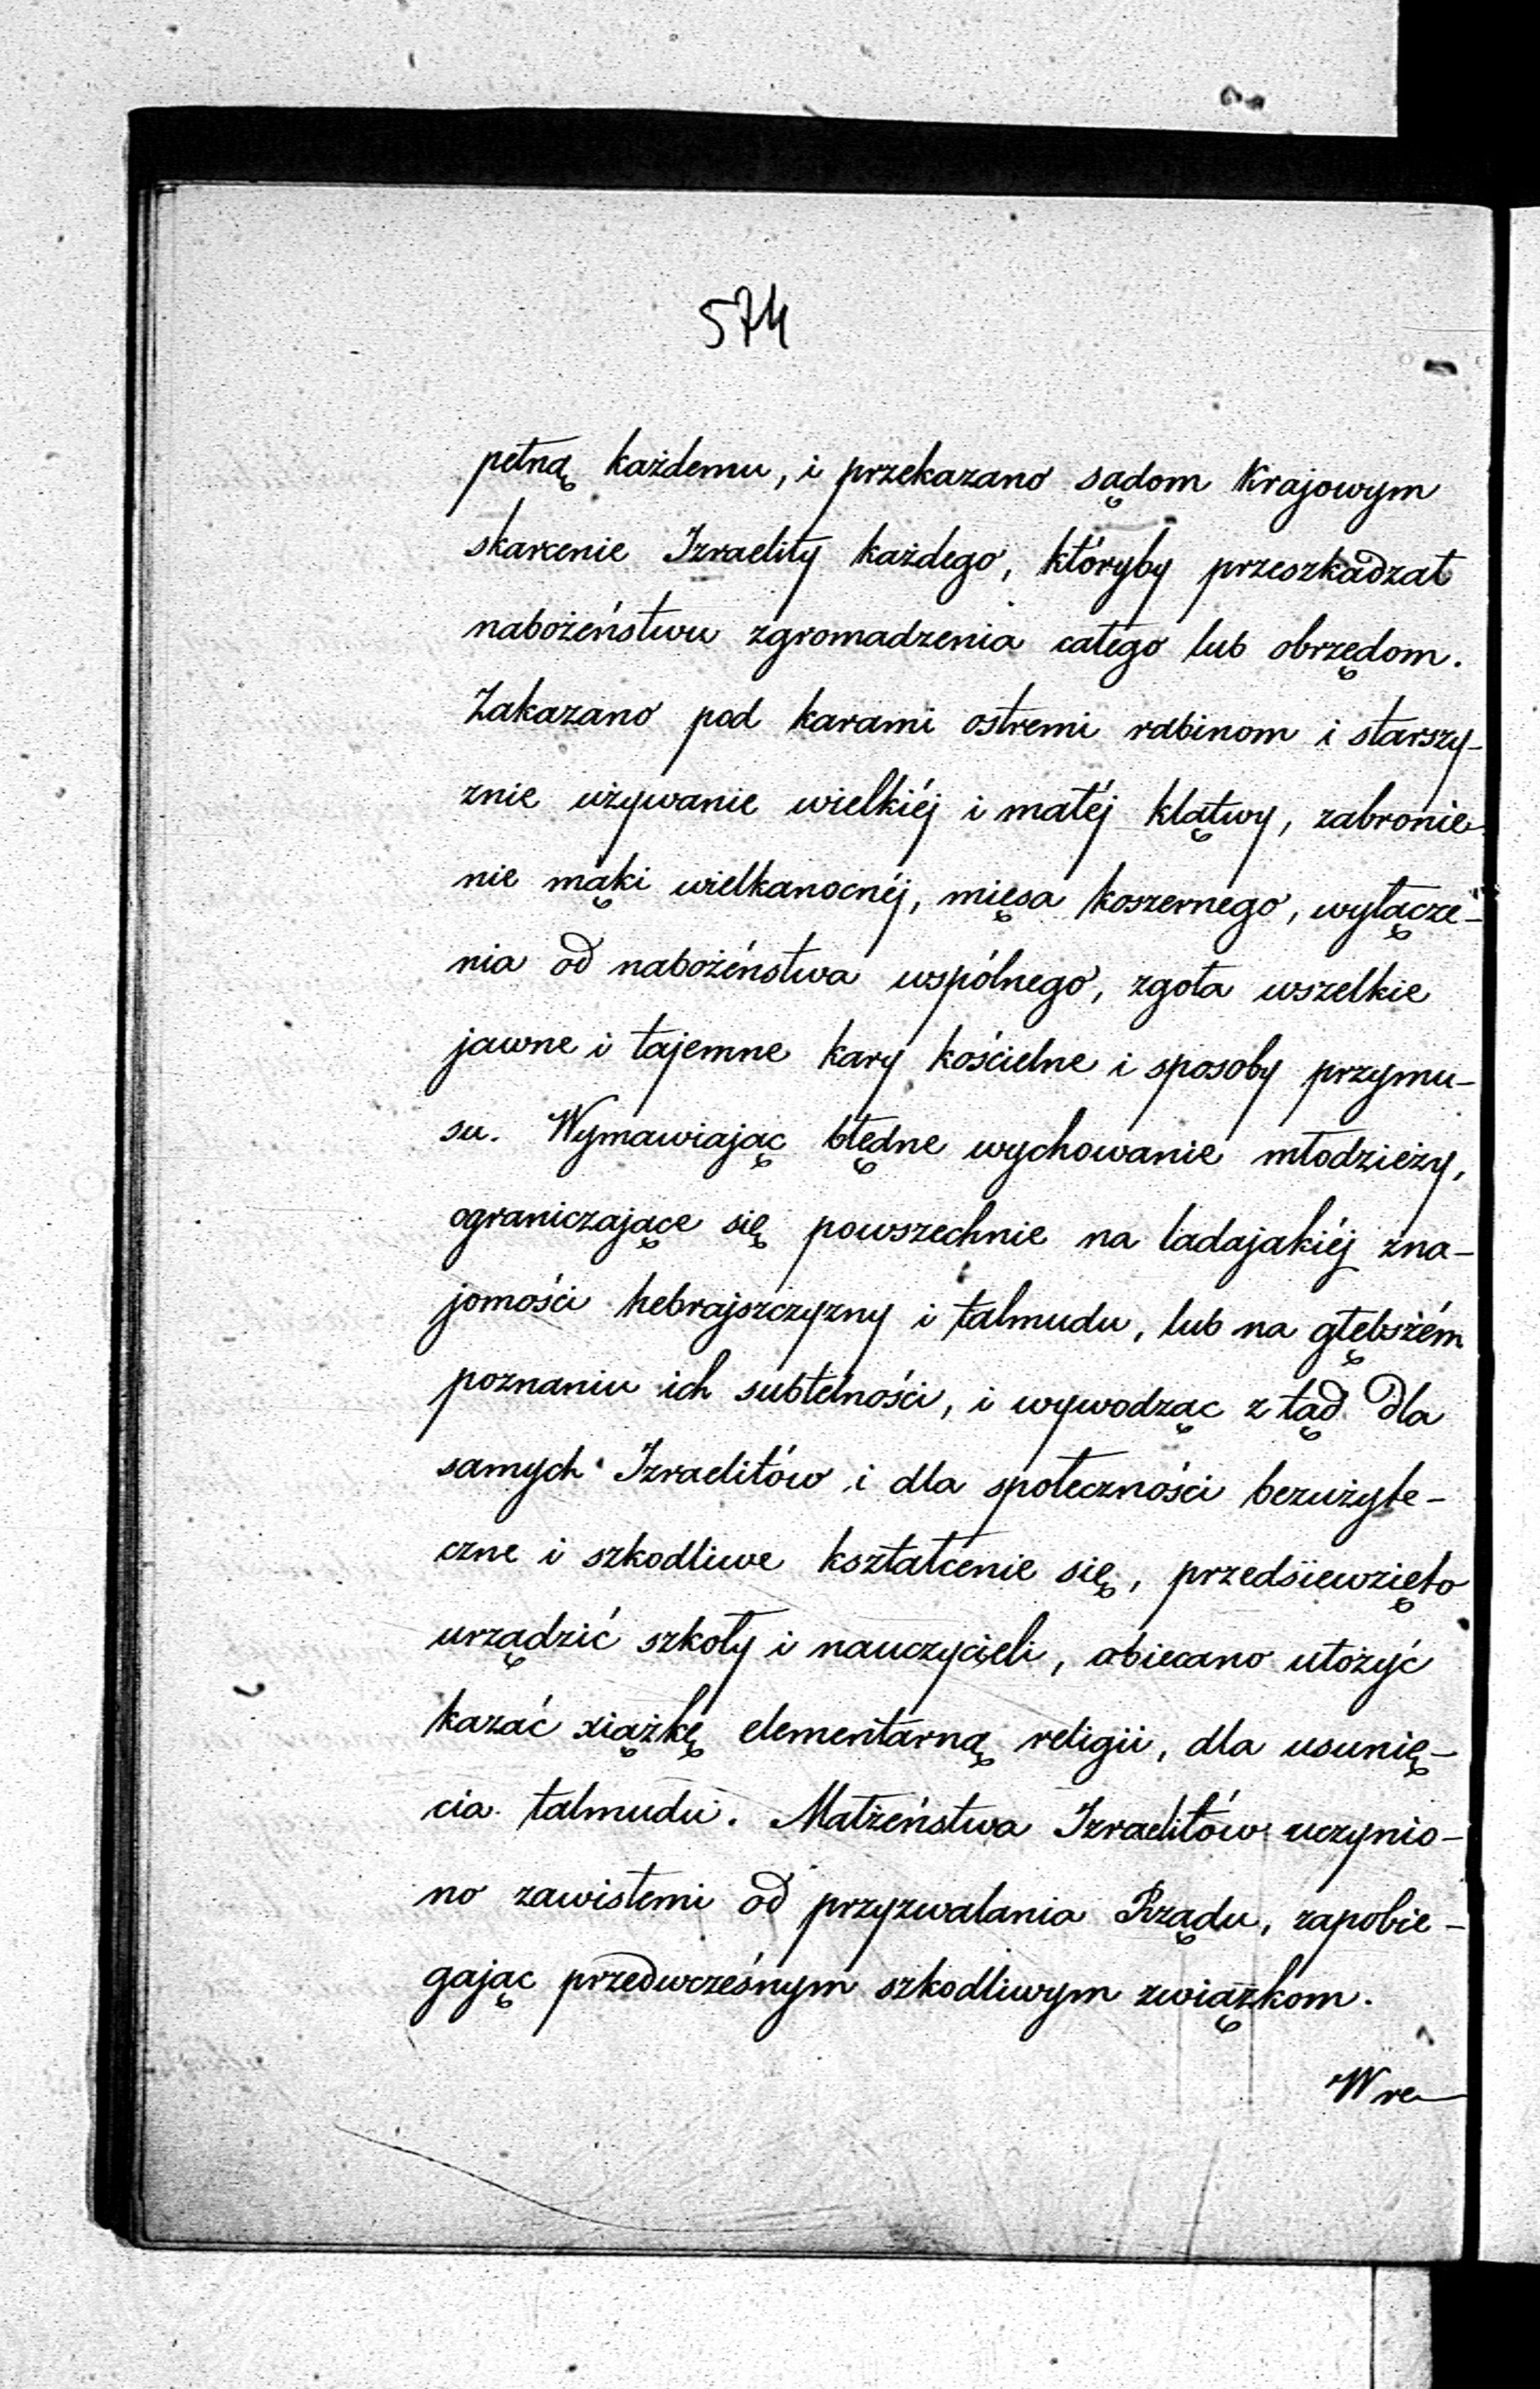 574
pełną każdemu, i przekazano sądom Krajowym
skarcenie Izraelity każdego, któryby przeszkadzał
nabożeństwu zgromadzenia całego lub obrzędom.
Zakazano pod karami ostremi rabinom i starszy-
znie używanie wielkiéj i małéj klątwy, zabronie-
nie mąki wielkanocnéj, mięsa koszernego, wyłącze-
nia od nabożeństwa wspólnego, zgoła wszelkie
jawne i tajemne kary kościelne i sposoby przymu-
su. Wymawiając błędne wychowanie młodzieży,
ograniczające się powszechnie na ladajakiéj zna-
jomości hebrajszczyzny i talmudu, lub na głębszém
poznaniu ich subtelności, i wywodząc z tąd dla
samych Izraelitów i dla społeczności bezużyte-
czne i szkodliwe kształcenie się, przedsiewzięto
urządzić szkoły i nauczycieli, obiecano ułożyć
kazać xiążkę elementarną religii, dla usunię-
cia talmudu. Małżeństwa Izraelitów uczynio-
no zawisłemi od przyzwalania Rządu, zapobie-
gając przedwczesnym szkodliwym związkom.
W re-